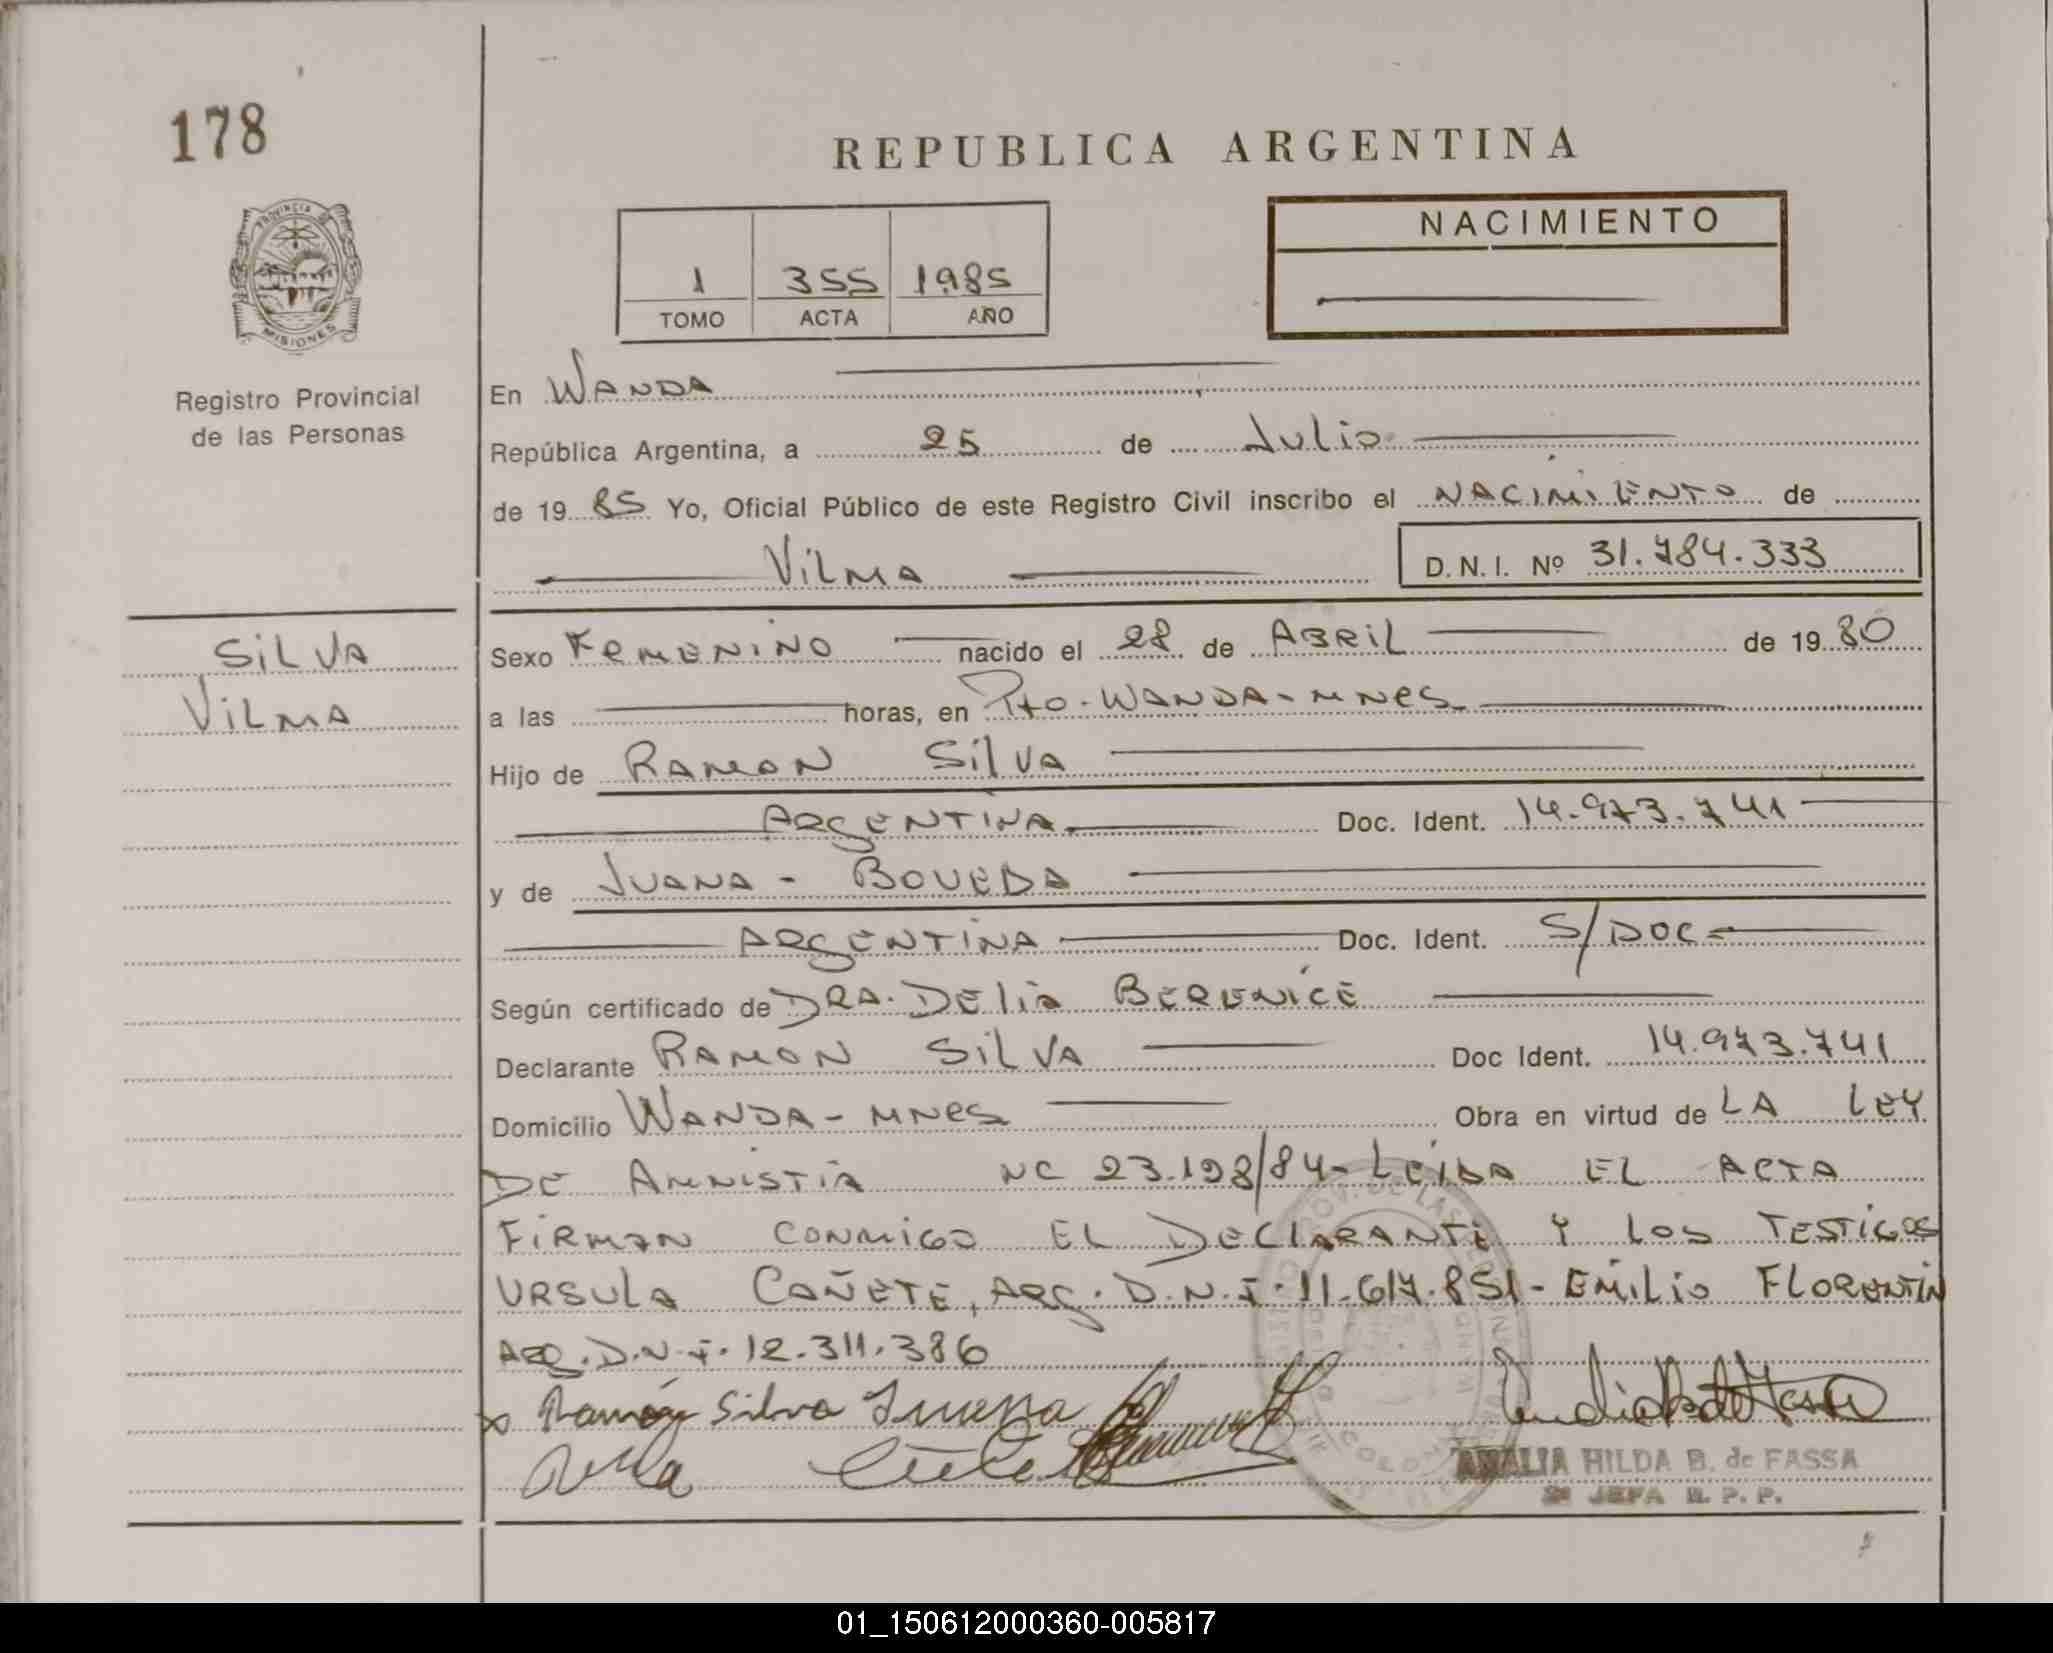 178
REPUBLICA ARGENTINA
PROVINCIA DE
MISIONES
Registro Provincial
de las Personas
1 355 1985
TOMO ACTA AÑO
NACIMIENTO
En WANDA
República Argentina, a 25 de Julio
de 19 85 Yo, Oficial Público de este Registro Civil inscribo el NACIMIENTO de
VILMA D.N.I. Nº 31.784.333
SILVA
VILMA
Sexo FEMENINO nacido el 28 de ABRIL de 19 80
a las horas, en Pto. WANDA - MNES
Hijo de RAMON SILVA
ARGENTINA Doc. Ident. 14.973.741
y de JUANA - BOVEDA
ARGENTINA Doc. Ident. S/DOC
Según certificado de DRA. DELIA BERENICE
Declarante RAMON SILVA Doc Ident. 14.973.741
Domicilio WANDA - MNES Obra en virtud de LA LEY
DE AMNISTIA NC 23.198/84 - LEIDA EL ACTA
FIRMAN CONMIGO EL DECLARANTE Y LOS TESTIGOS
URSULA CAÑETE, ARG. D.N.I. 11.617.851 - EMILIO FLORENTIN
ARG. D.N.I. 12.311.386
x Ramón Silva
AMALIA HILDA B. de FASSA
JEFA R. P. P.
01_150612000360-005817